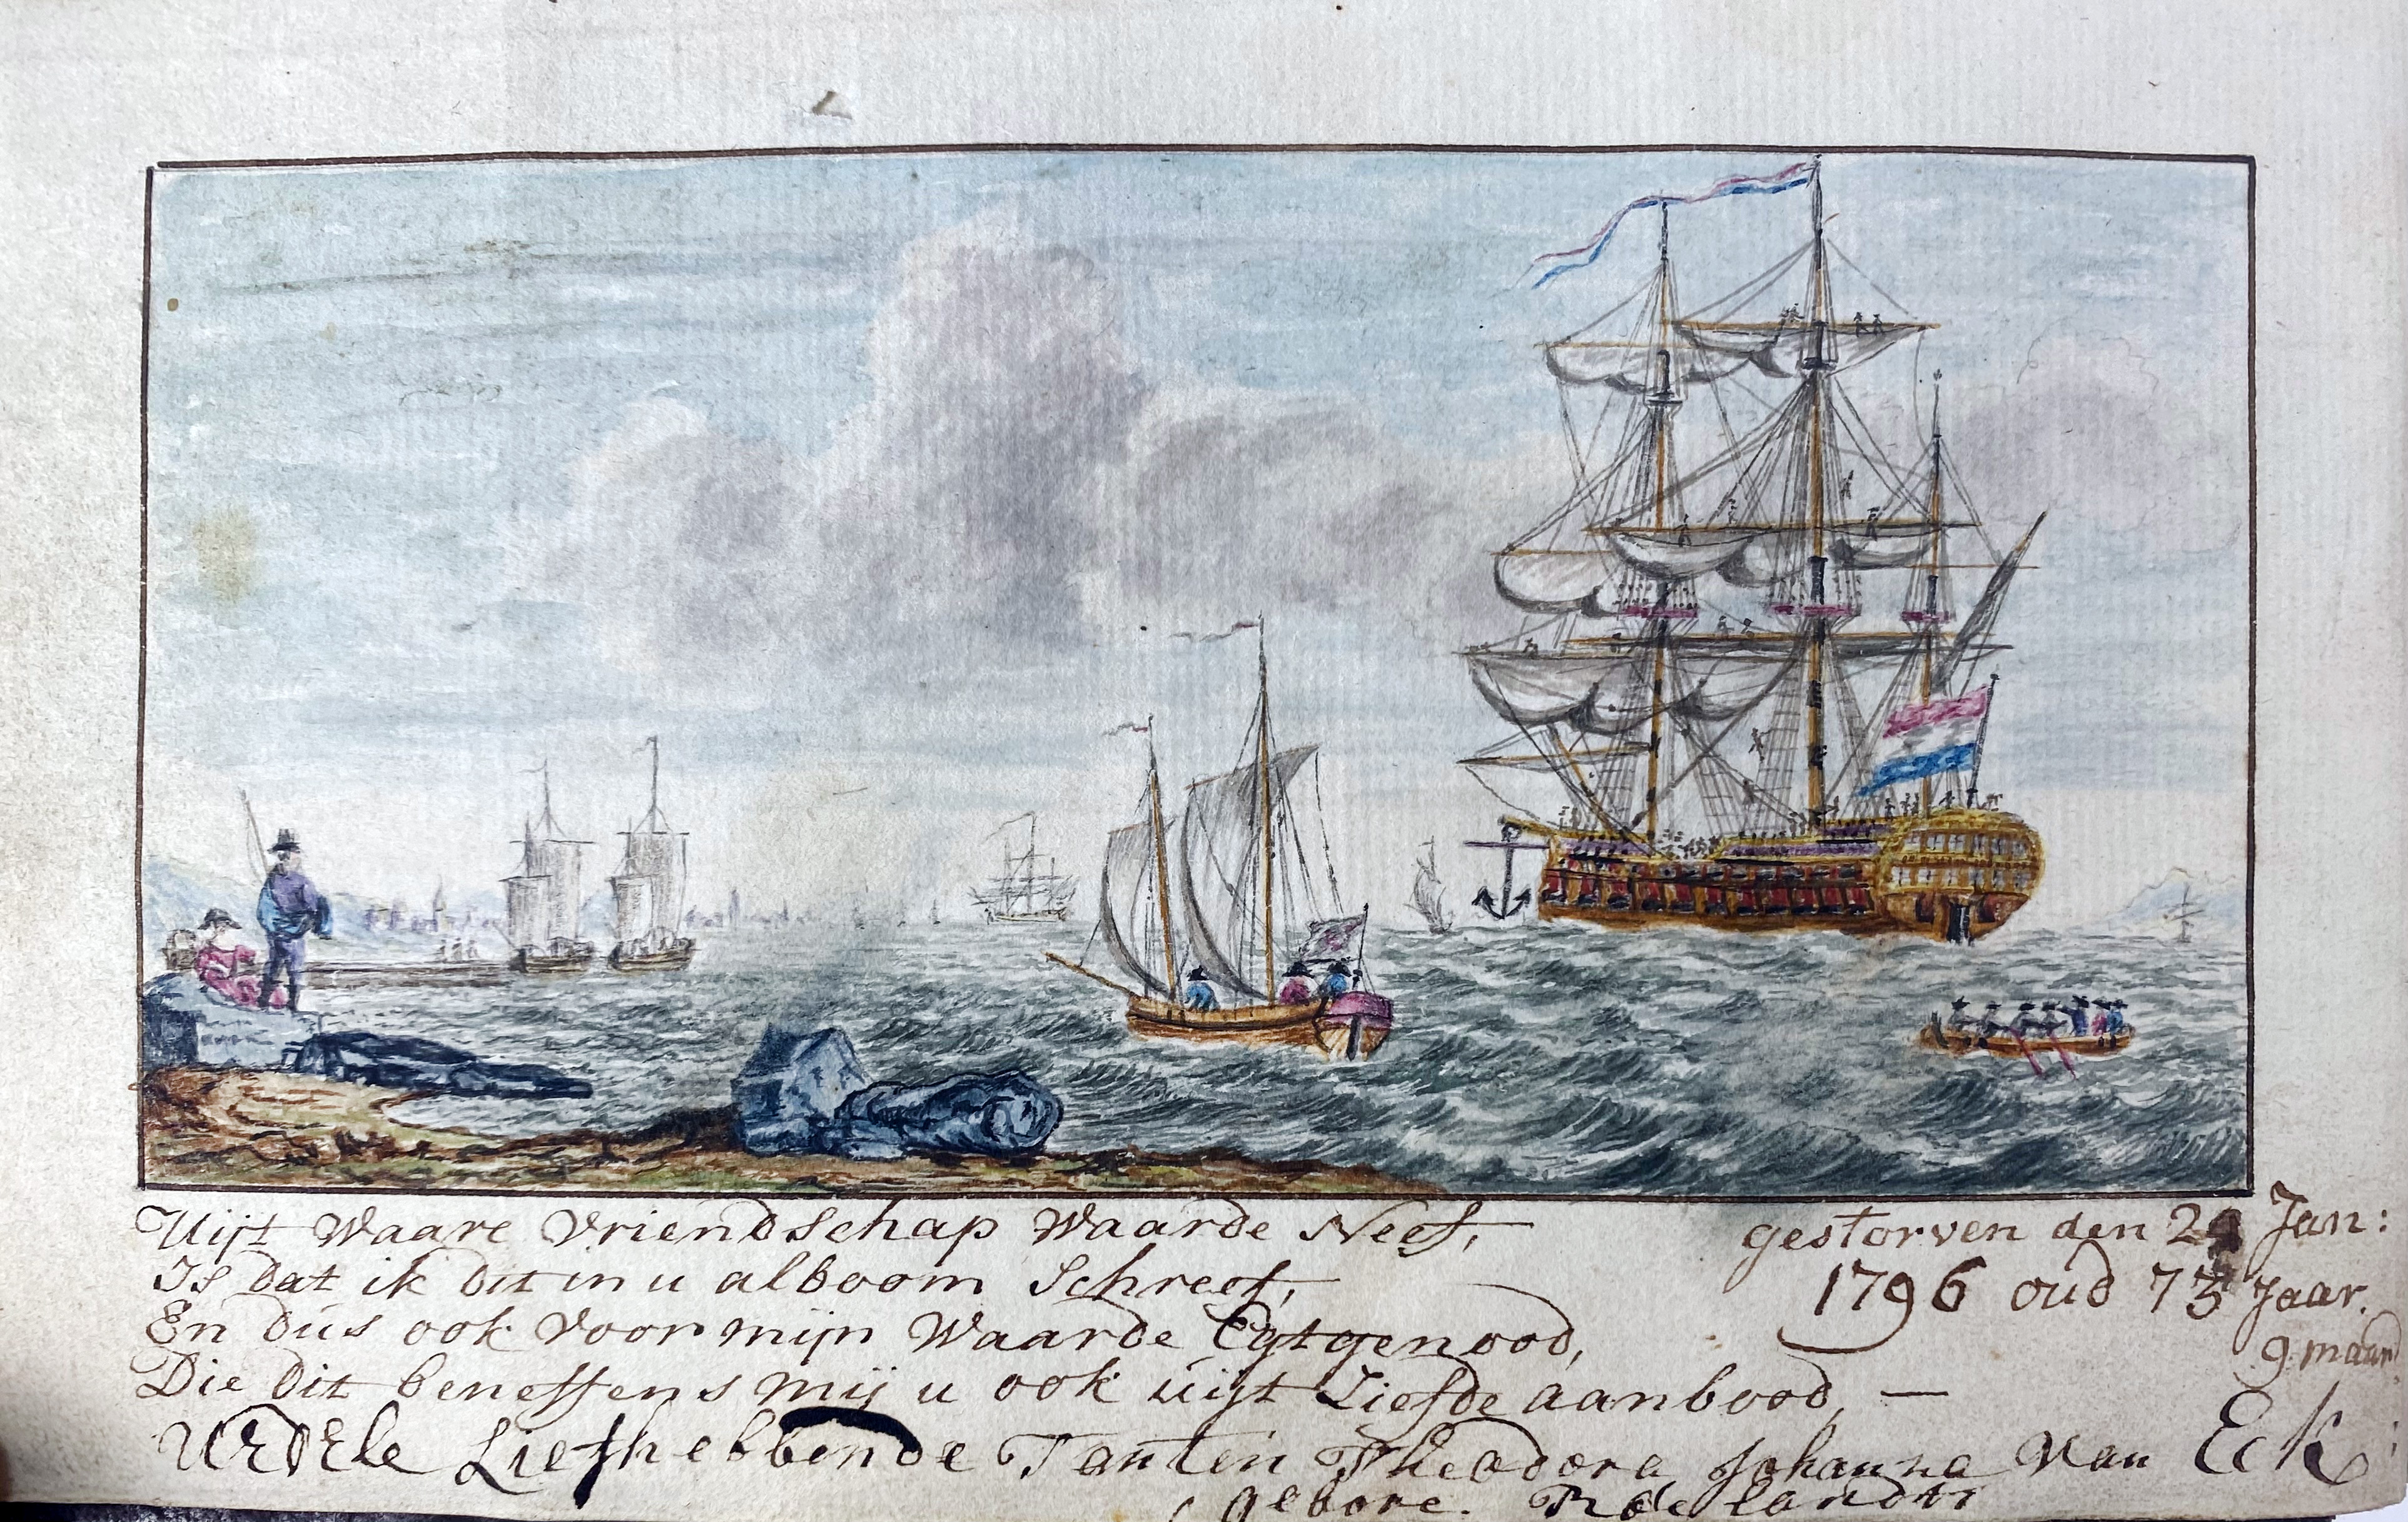 Uijt Waare Vriendschap Waarde Neef,
Is dat ik dit in u alboom Schreef,
En dus ook Voor mijn Waarde Egtgenood,
Die dit beneffens mij u ook uijt Liefde aanbood, —
UEDEle Liefhebbende Tante Theodora Johanna Van Eck
gebore.
gestorven den Jan:
1796 oud 73 Jaar.
9 maand